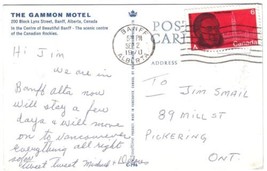 THE GAMMON MOTEL
200 Block Lynx Street, Banff, Alberta, Canada
In the Centre of Beautiful Banff - The scenic centre
of the Canadian Rockies.
BANFF
5 PM
ALBERTA
POST
CARD
6
Canada
ADDRESS
Hi Jim
We are in
Banff after now
Will stay a few
days & will move
on to Vancouver
Everything all right
so far
TO JIM SMAIL
89 MILL ST
PICKERING
ONT.